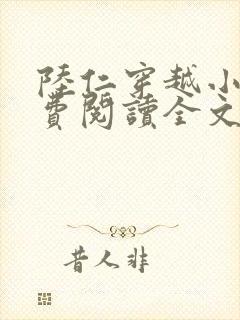 陸仁穿越小
費閱讀全文
昔人非